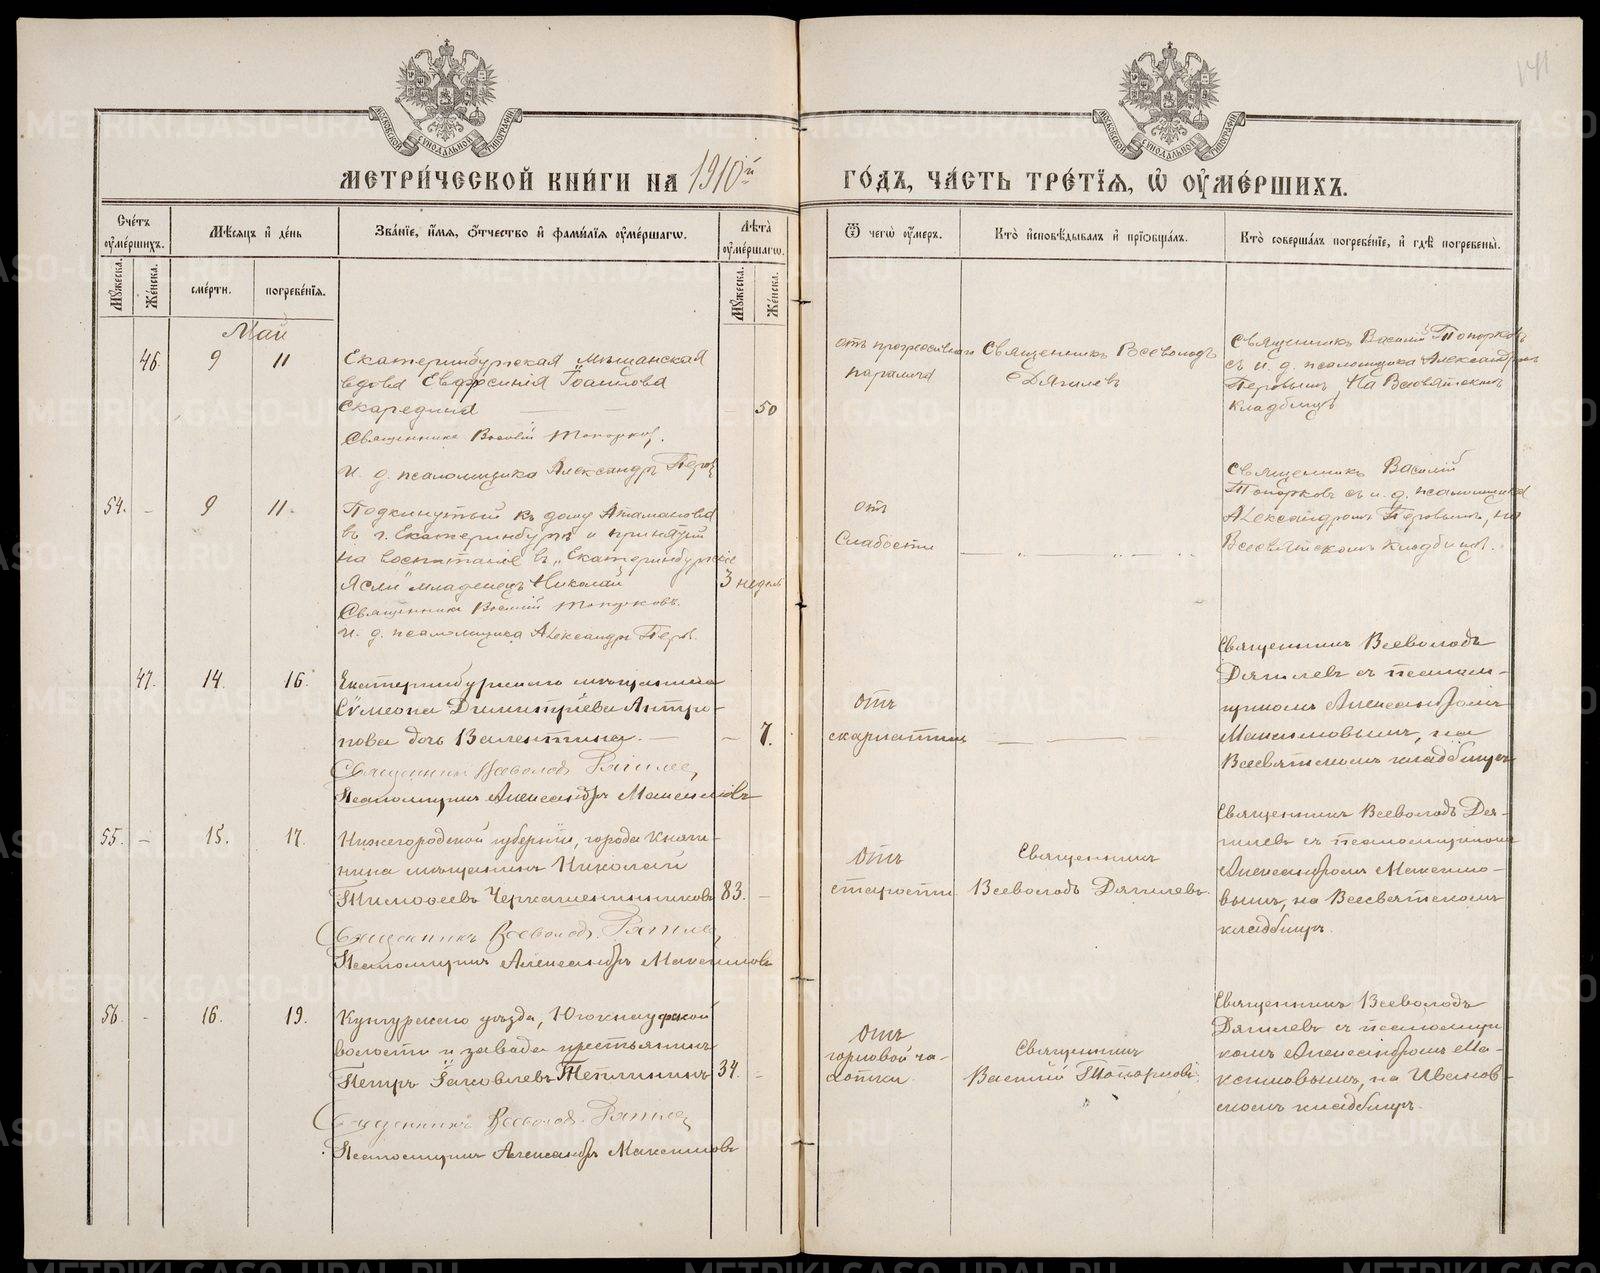 141
МОСКОВСКОЙ СѴНОДАЛЬНОЙ ТИПОГРАФІИ
МОСКОВСКОЙ СѴНОДАЛЬНОЙ ТИПОГРАФІИ
МЕТРИ́ЧЕСКОЙ КНИ́ГИ НА 1910й
ГО́ДЪ, ЧА́СТЬ ТРЕ́ТЇѦ, Ѡ҆ ОУ҆МЕ́РШИХЪ.
Сче́тъ оу҆ме́ршихъ.
Мꙋ́жеска.
Же́нска.
Мѣ́сяцъ и҆ де́нь
сме́рти.
погребе́нїѧ.
Зва́нїе, и҆́мѧ, ѻ҆́тчество и҆ фами́лїѧ оу҆ме́ршагѡ.
Лѣта̀ оу҆ме́ршагѡ.
Мꙋ́жеска.
Же́нска.
Ѿ чегѡ̀ оу҆́меръ.
Кто̀ и҆сповѣ́дывалъ и҆ прїѡбща́лъ.
Кто̀ соверша́лъ погребе́нїе, и҆ гдѣ̀ погребены̀.
Май
46. 9 11
Екатеринбургская мѣщанская
вдова Евфросинія Іоакимова
Скаредина — 50
Священникъ Василій Топорков.
И. д. псаломщика Александръ Перов
отъ прогрессивнаго
паралича
Священникъ Всеволодъ
Дягилевъ
Священникъ Василій Топорковъ
съ и. д. псаломщика Александромъ
Перовымъ на Всесвятскомъ
кладбищѣ
54. - 9 11.
Подкинутый къ дому Атаманова
въ г. Екатеринбургѣ и принятый
на воспитаніе въ „Екатеринбургскіе
Ясли" младенецъ Николай 3 недѣль
Священникъ Василій Топорковъ.
И. д. псаломщика Александръ Перов.
отъ
Слабости
Священникъ Василій
Топорковъ съ и. д. псаломщика
Александромъ Перовымъ, на
Всесвятскомъ кладбищѣ.
47. 14. 16.
Екатеринбургскаго мѣщанина
Сѵмеона Димитріева Антро-
пова дочь Валентина. — - 7.
Священникъ Всеволодъ Дягилев,
Псаломщикъ Александръ Максимовъ
отъ
скарлатины
Священникъ Всеволодъ
Дягилевъ съ псалом-
щикомъ Александромъ
Максимовымъ, на
Всесвятскомъ кладбищѣ
55. - 15. 17.
Нижегородской губерніи, города Княги-
нина мѣщанинъ Николай
Тимоѳеевъ Черкашенинниковъ 83. -
Священникъ Всеволодъ Дягилев,
Псаломщикъ Александръ Максимовъ
отъ
старости.
Священникъ
Всеволодъ Дягилевъ.
Священникъ Всеволодъ Дя-
гилевъ съ псаломщикомъ
Александромъ Максимо-
вымъ, на Всесвятскомъ
кладбищѣ.
56. - 16. 19.
Кунгурскаго уѣзда, Югокнауфской
волости и завода крестьянинъ
Петръ Іаковлевъ Теплининъ 34. -
Священникъ Всеволодъ Дягилев
Псаломщикъ Александръ Максимовъ
отъ
горловой ча-
хотки.
Священникъ
Василій Топорковъ.
Священникъ Всеволодъ
Дягилевъ съ псаломщи
комъ Александромъ Ма-
ксимовымъ, на Иванов-
скомъ кладбищѣ.
METRIKI.GASO-URAL.RU